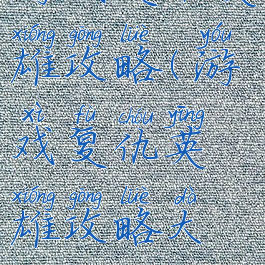 xióng gōng lüè yóu
雄攻略(游
xì fù chóu yīng
戏复仇英
xióng gōng lüè dà
雄攻略大